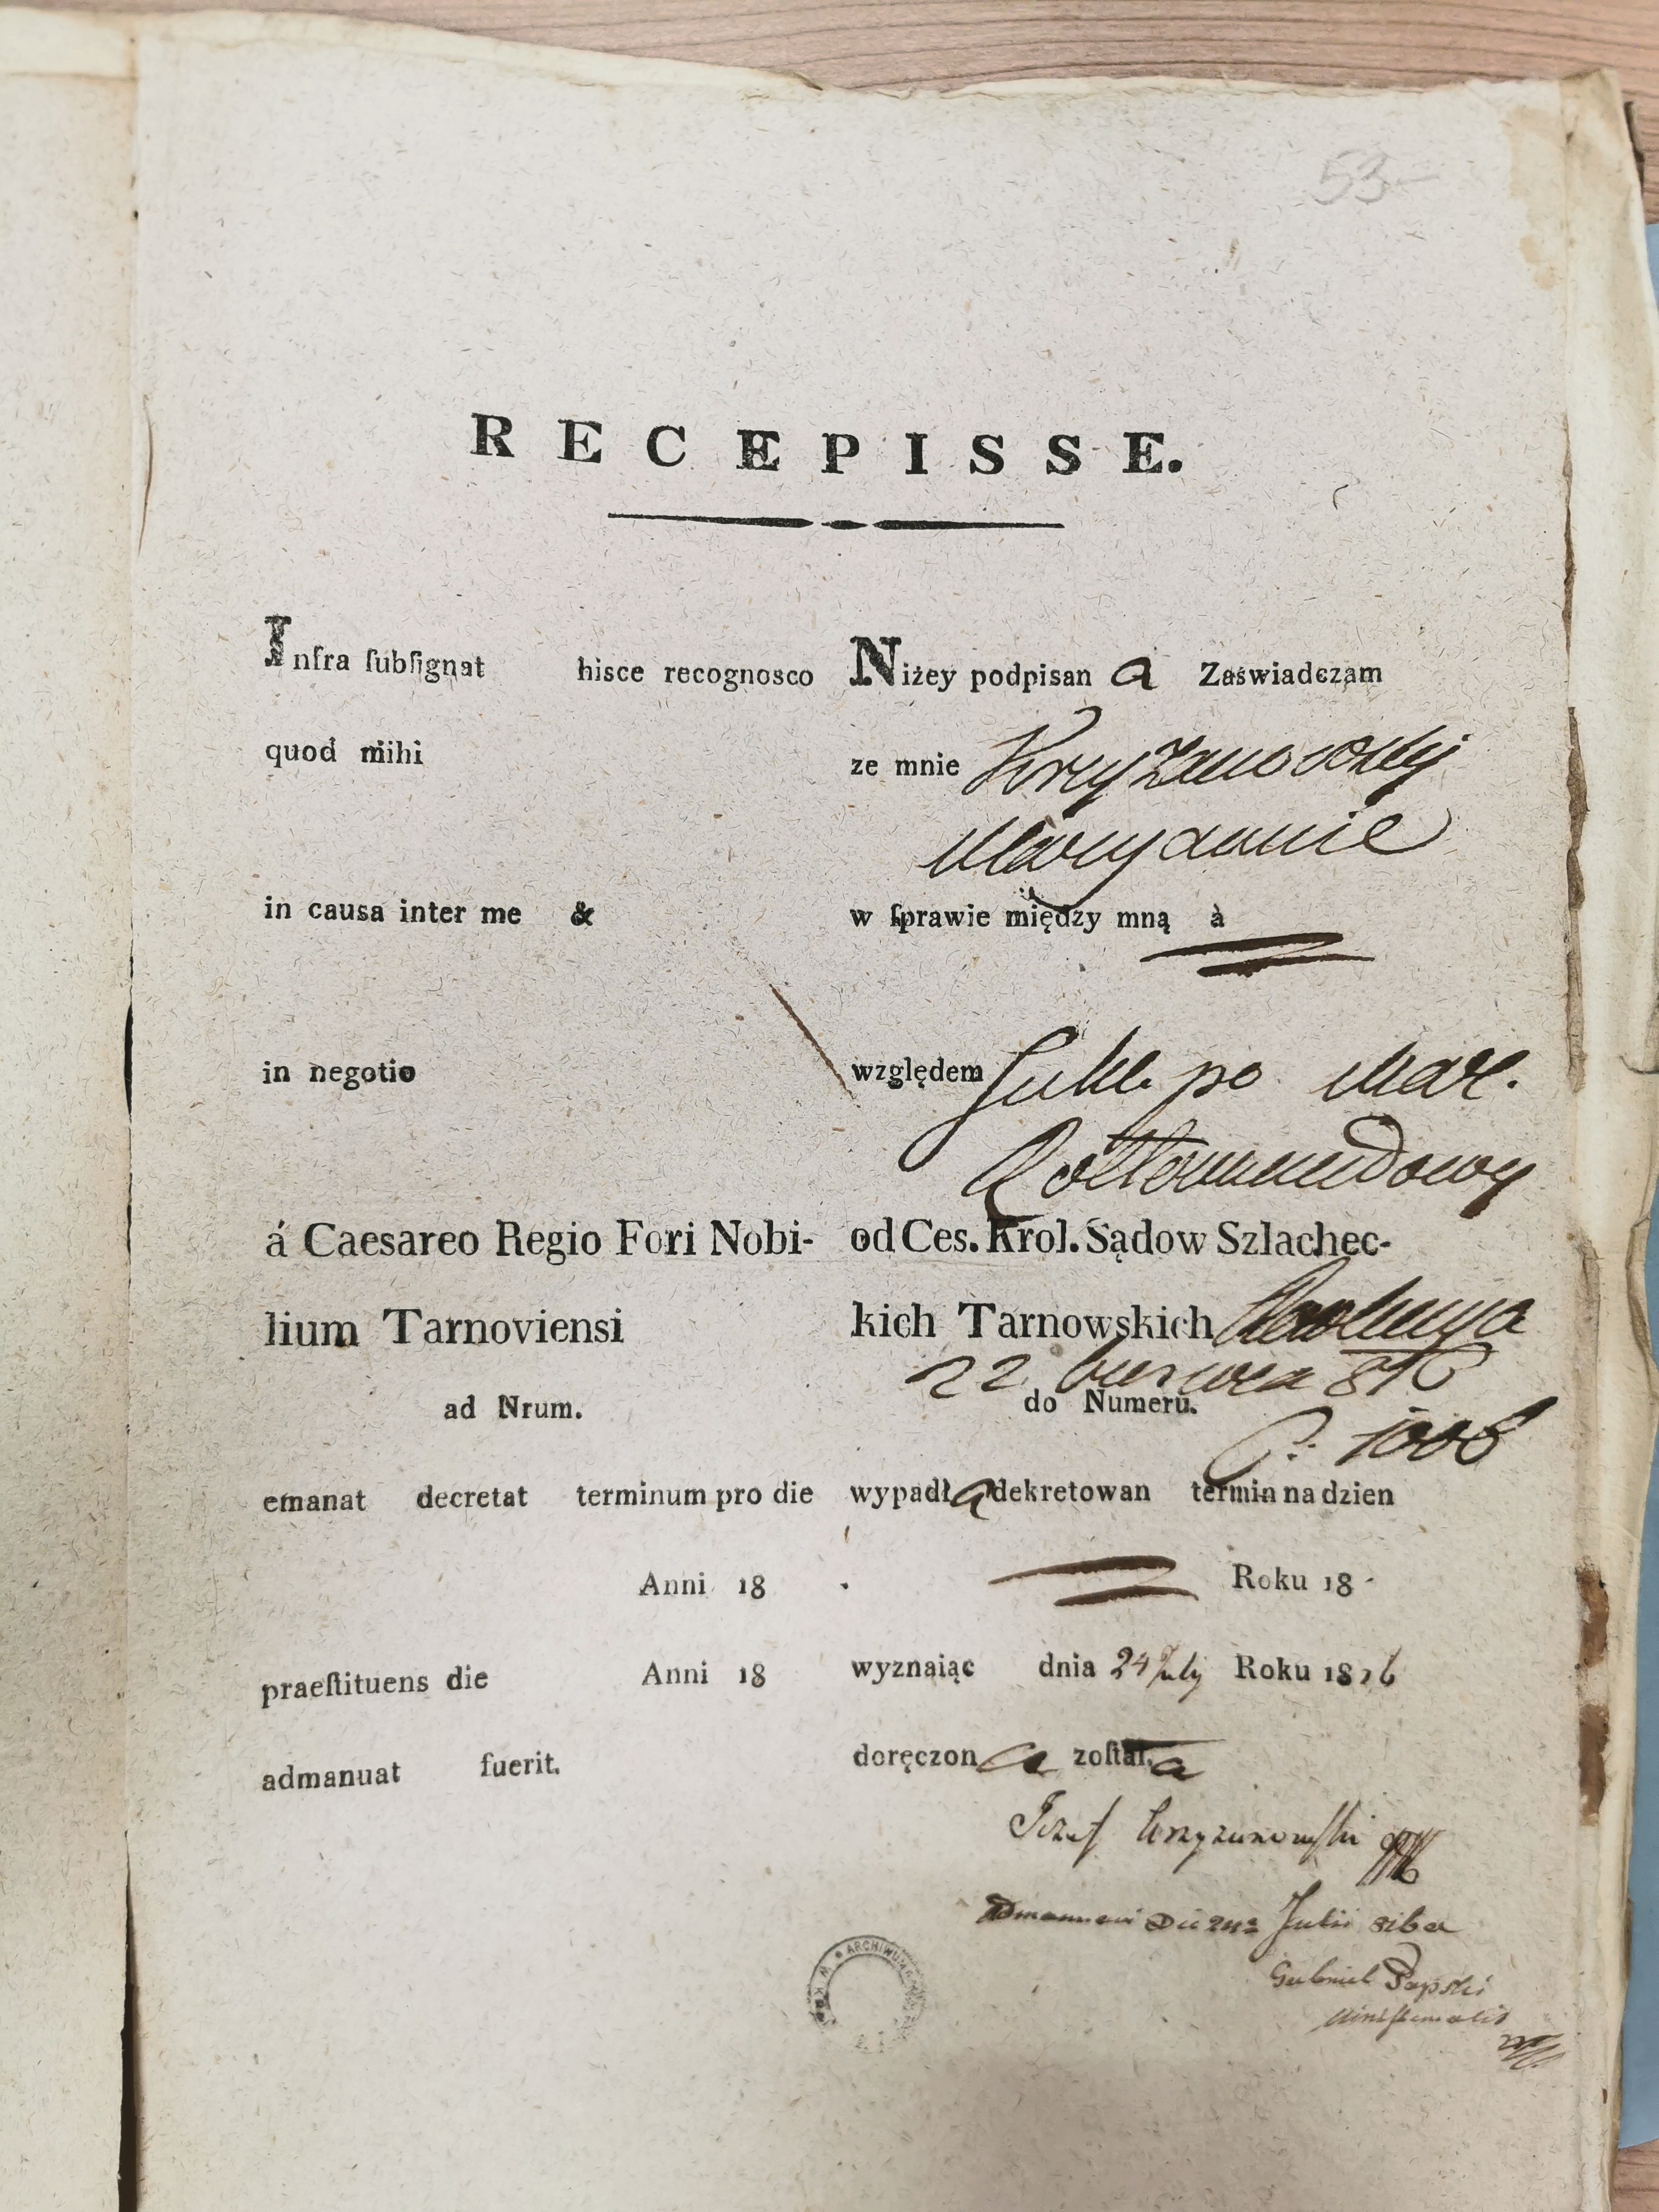 53
RECEPISSE.
Infra ſubſignat hisce recognosco
quod mihi
in causa inter me &
in negotio
á Caesareo Regio Fori Nobi-
lium Tarnoviensi
ad Nrum.
emanat decretat terminum pro die
Anni 18
praeſtituens die Anni 18
admanuat fuerit.
Niżey podpisan a Zaświadczam
ze mnie Kryzanoskiy
Maryannie
w ſprawie między mną à
względem Sukc. po Mar.
od Ces. Krol. Sądow Szlachec-
kich Tarnowskich Rezolucya
22 Czerwca 816
do Numeru.
wypadł a dekretowan termin na dzien
Roku 18
wyznaiąc dnia 24 July Roku 1816
doręczon a zoſtał. a
Jozef Krzyzanowſki
Admanuavi Die 24ta Julii 816
Gabriel
Miniſterialis
ARCHIWUM